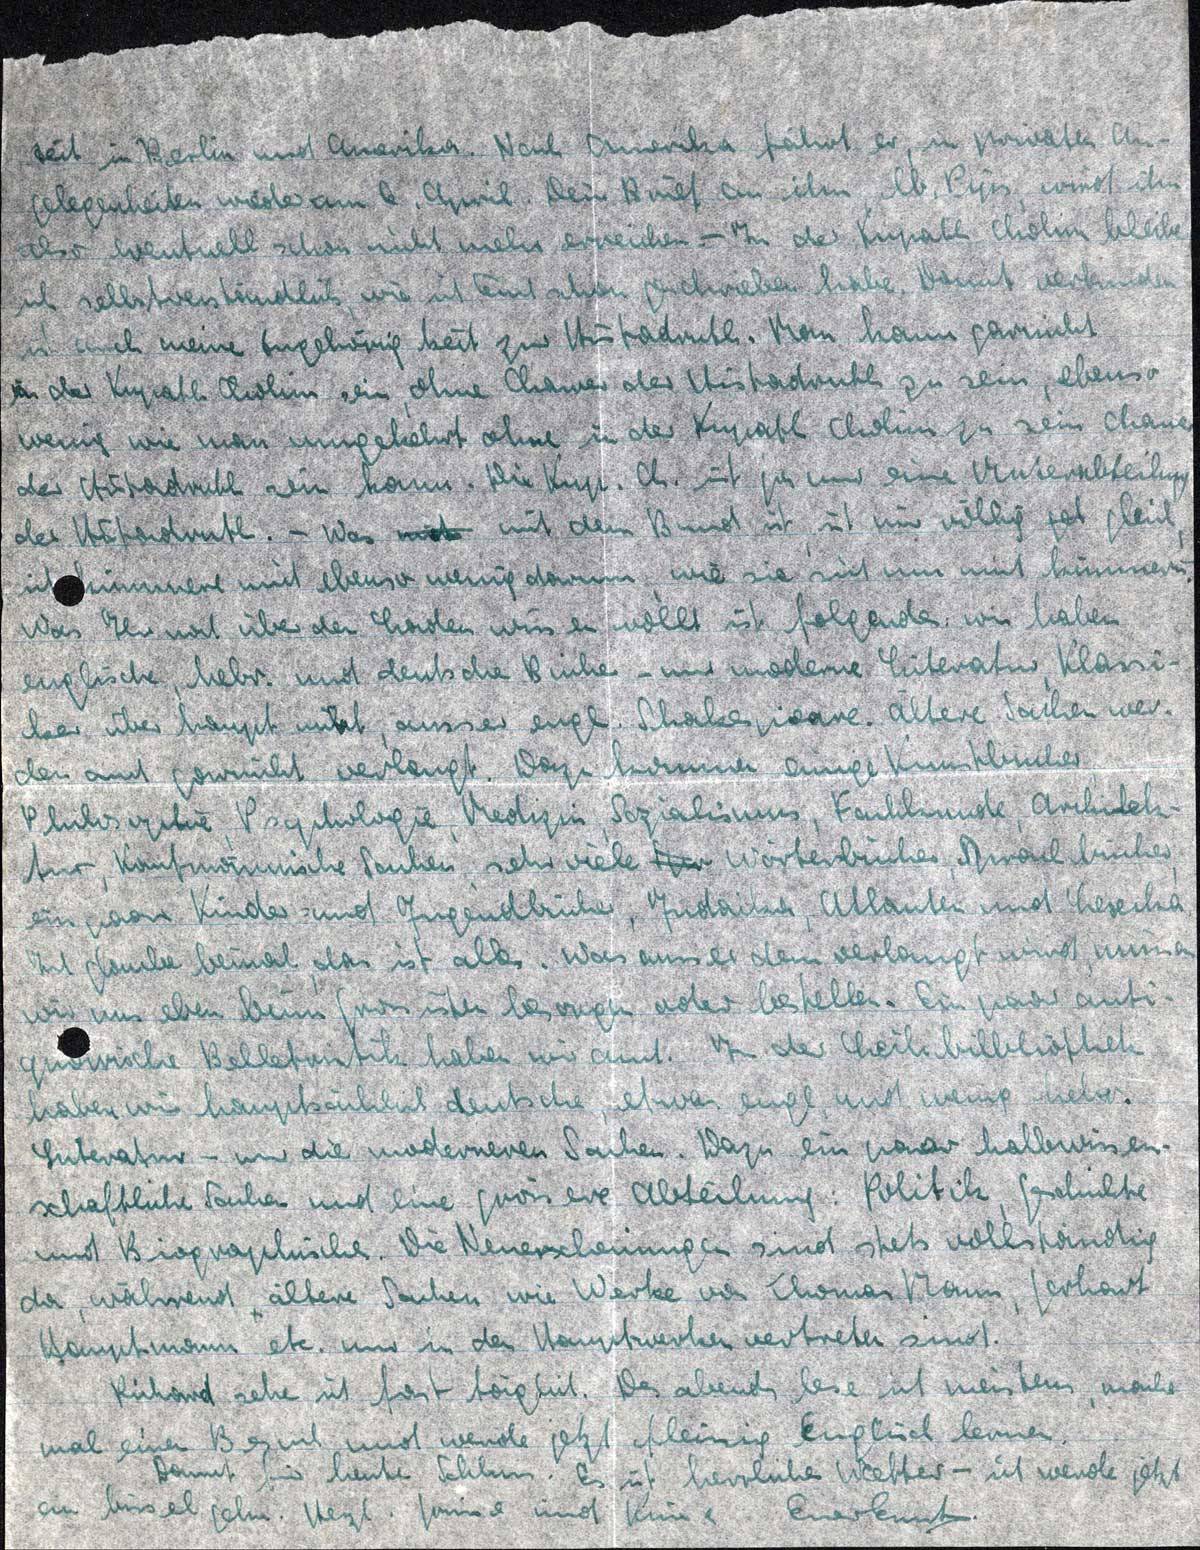 zeit in Berlin und Amerika. Nach Amerika fährt er in privaten An-
gelegenheiten wieder am 6. April. Dein Brief an ihn, lb. Pips, wird ihn
also eventuell schon nicht mehr erreichen. – In der Kupath Cholim bleibe
ich selbstverständlich, wie ich Euch schon geschrieben habe. Damit verbunden
ist auch meine Zugehörigkeit zur Histadruth. Man kann garnicht
in der Kupath Cholim sein, ohne Chawer der Histadruth zu sein, ebenso
wenig wie man umgekehrt ohne in der Kupath Cholim zu sein Chawer
der Histadruth sein kann. Die Kup. Ch. ist ja nur eine Unterabteilung
der Histadruth. – Was mit dem Bund ist, ist mir völlig gleich,
ich kümmere mich ebenso wenig darum, wie sie sich um mich kümmern.
Was Ihr noch über den Laden wissen wollt ist folgendes: wir haben
englische, hebr. und deutsche Bücher – nur moderne Literatur, Klassi-
ker überhaupt nicht, ausser engl. Shakespeare. Ältere Sachen wer-
den auch garnicht verlangt. Dazu kommen einige Kunstbücher,
Philosophie, Psychologie, Medizin, Sozialismus, Fachkunde, Architek-
tur, Kaufmännische Sachen, sehr viele Wörterbücher, Sprachbücher,
ein paar Kinder- und Jugendbücher, Judaika, Atlanten und
Ich glaube beinah, das ist alles. Was ausserdem verlangt wird, müssen
wir uns eben beim Grossisten besorgen oder bestellen. Ein paar anti-
quarische Belletristik haben wir auch. In der Leihbibliothek
haben wir hauptsächlich deutsche, etwas engl. und wenig hebr.
Literatur – nur die moderneren Sachen. Dazu ein paar halbwissen-
schaftliche Sachen und eine grössere Abteilung: Politik, Geschichte
und Biographische. Die Neuerscheinungen sind stets vollständig
da, während ältere Sachen wie Werke von Thomas Mann, Gerhart
Hauptmann etc. nur in den Hauptwerken vertreten sind.
Richard sehe ich fast täglich. Des abends lese ich meistens, manch-
mal einen Besuch und werde jetzt fleissig Englisch lernen.
Damit für heute Schluss. Es ist herrliches Wetter – ich werde jetzt
ein bissel gehn. Herzl. Grüsse und Küsse Euer